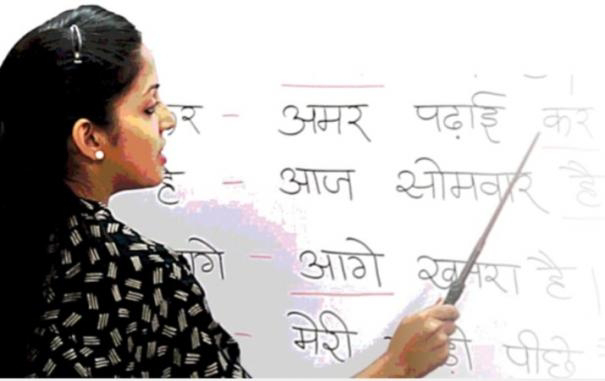 कर - अमर पढ़ाई कर
है - आज सोमवार है
आगे - आगे खतरा है
- मेरी पीछे